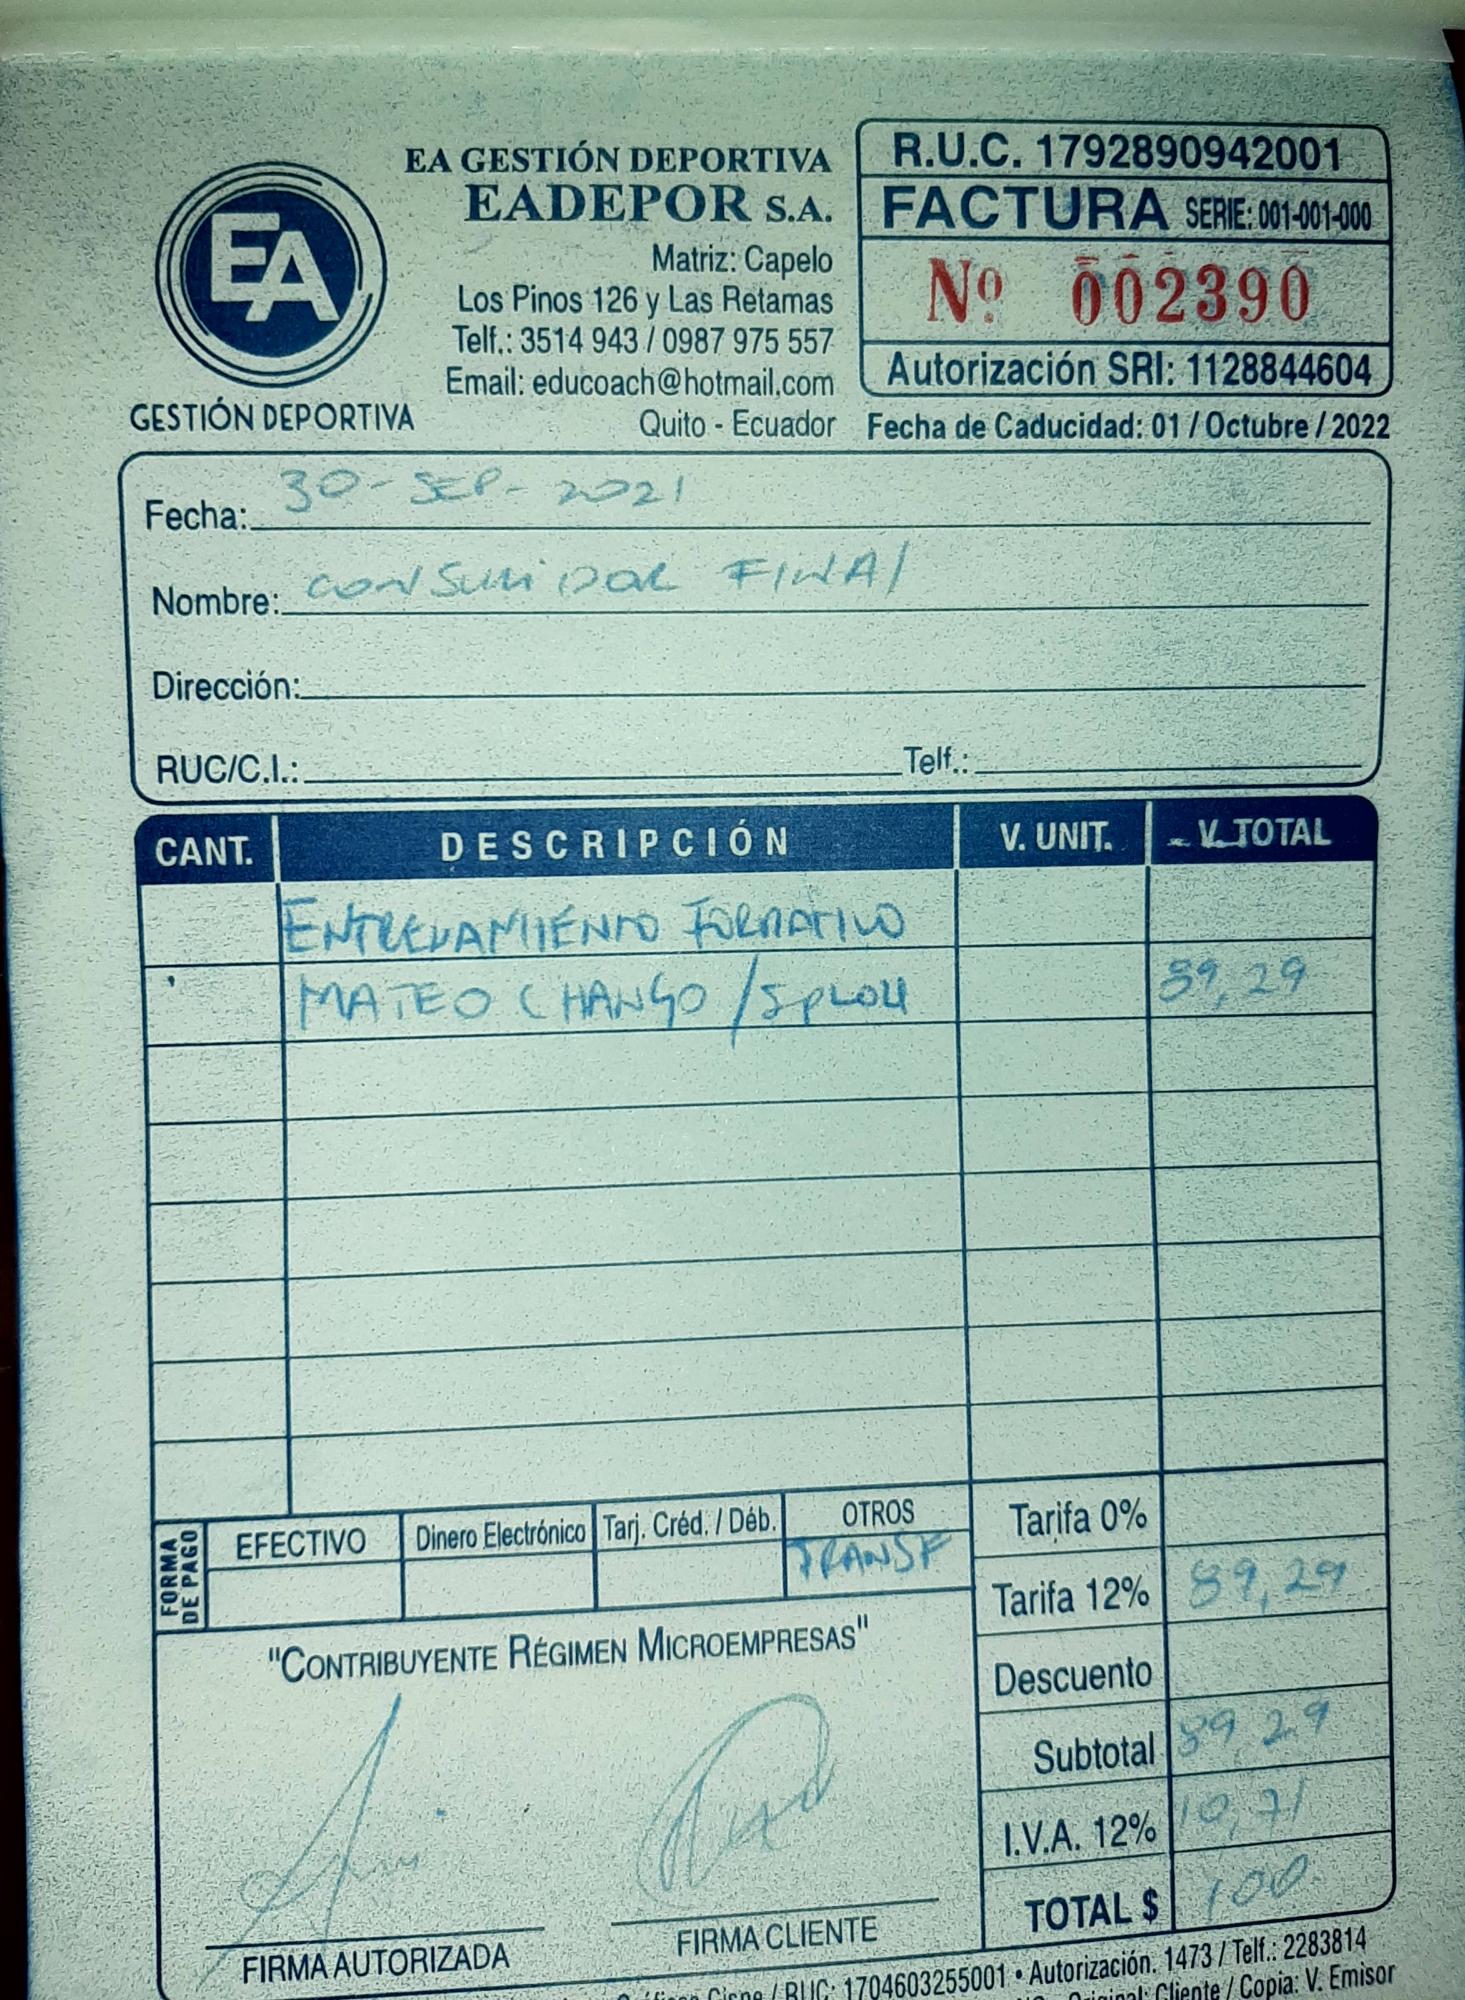 EA GESTIÓN DEPORTIVA
EADEPOR S.A.
Matriz: Capelo
Los Pinos 126 y Las Retamas
Telf.: 3514 943 / 0987 975 557
Email: educoach@hotmail.com
Quito - Ecuador
EA
GESTIÓN DEPORTIVA
R.U.C. 1792890942001
FACTURA SERIE: 001-001-000
Nº 002390
Autorización SRI: 1128844604
Fecha de Caducidad: 01 / Octubre / 2022
Fecha: 30-SEP-2021
Nombre: CONSUMIDOR FINAL
Dirección:
RUC/C.I.: Telf.:
CANT. DESCRIPCIÓN V. UNIT. V. TOTAL
ENTRENAMIENTO FORMATIVO
MATEO CHANGO / 89,29
FORMA DE PAGO
EFECTIVO Dinero Electrónico Tarj. Créd. / Déb. OTROS
TRANSF
Tarifa 0%
Tarifa 12% 89,29
Descuento
Subtotal 89,29
I.V.A. 12% 10,71
TOTAL $ 100
"CONTRIBUYENTE RÉGIMEN MICROEMPRESAS"
FIRMA AUTORIZADA FIRMA CLIENTE
Cisne / RUC: 1704603255001 • Autorización. 1473 / Telf.: 2283814
Original: Cliente / Copia: V. Emisor